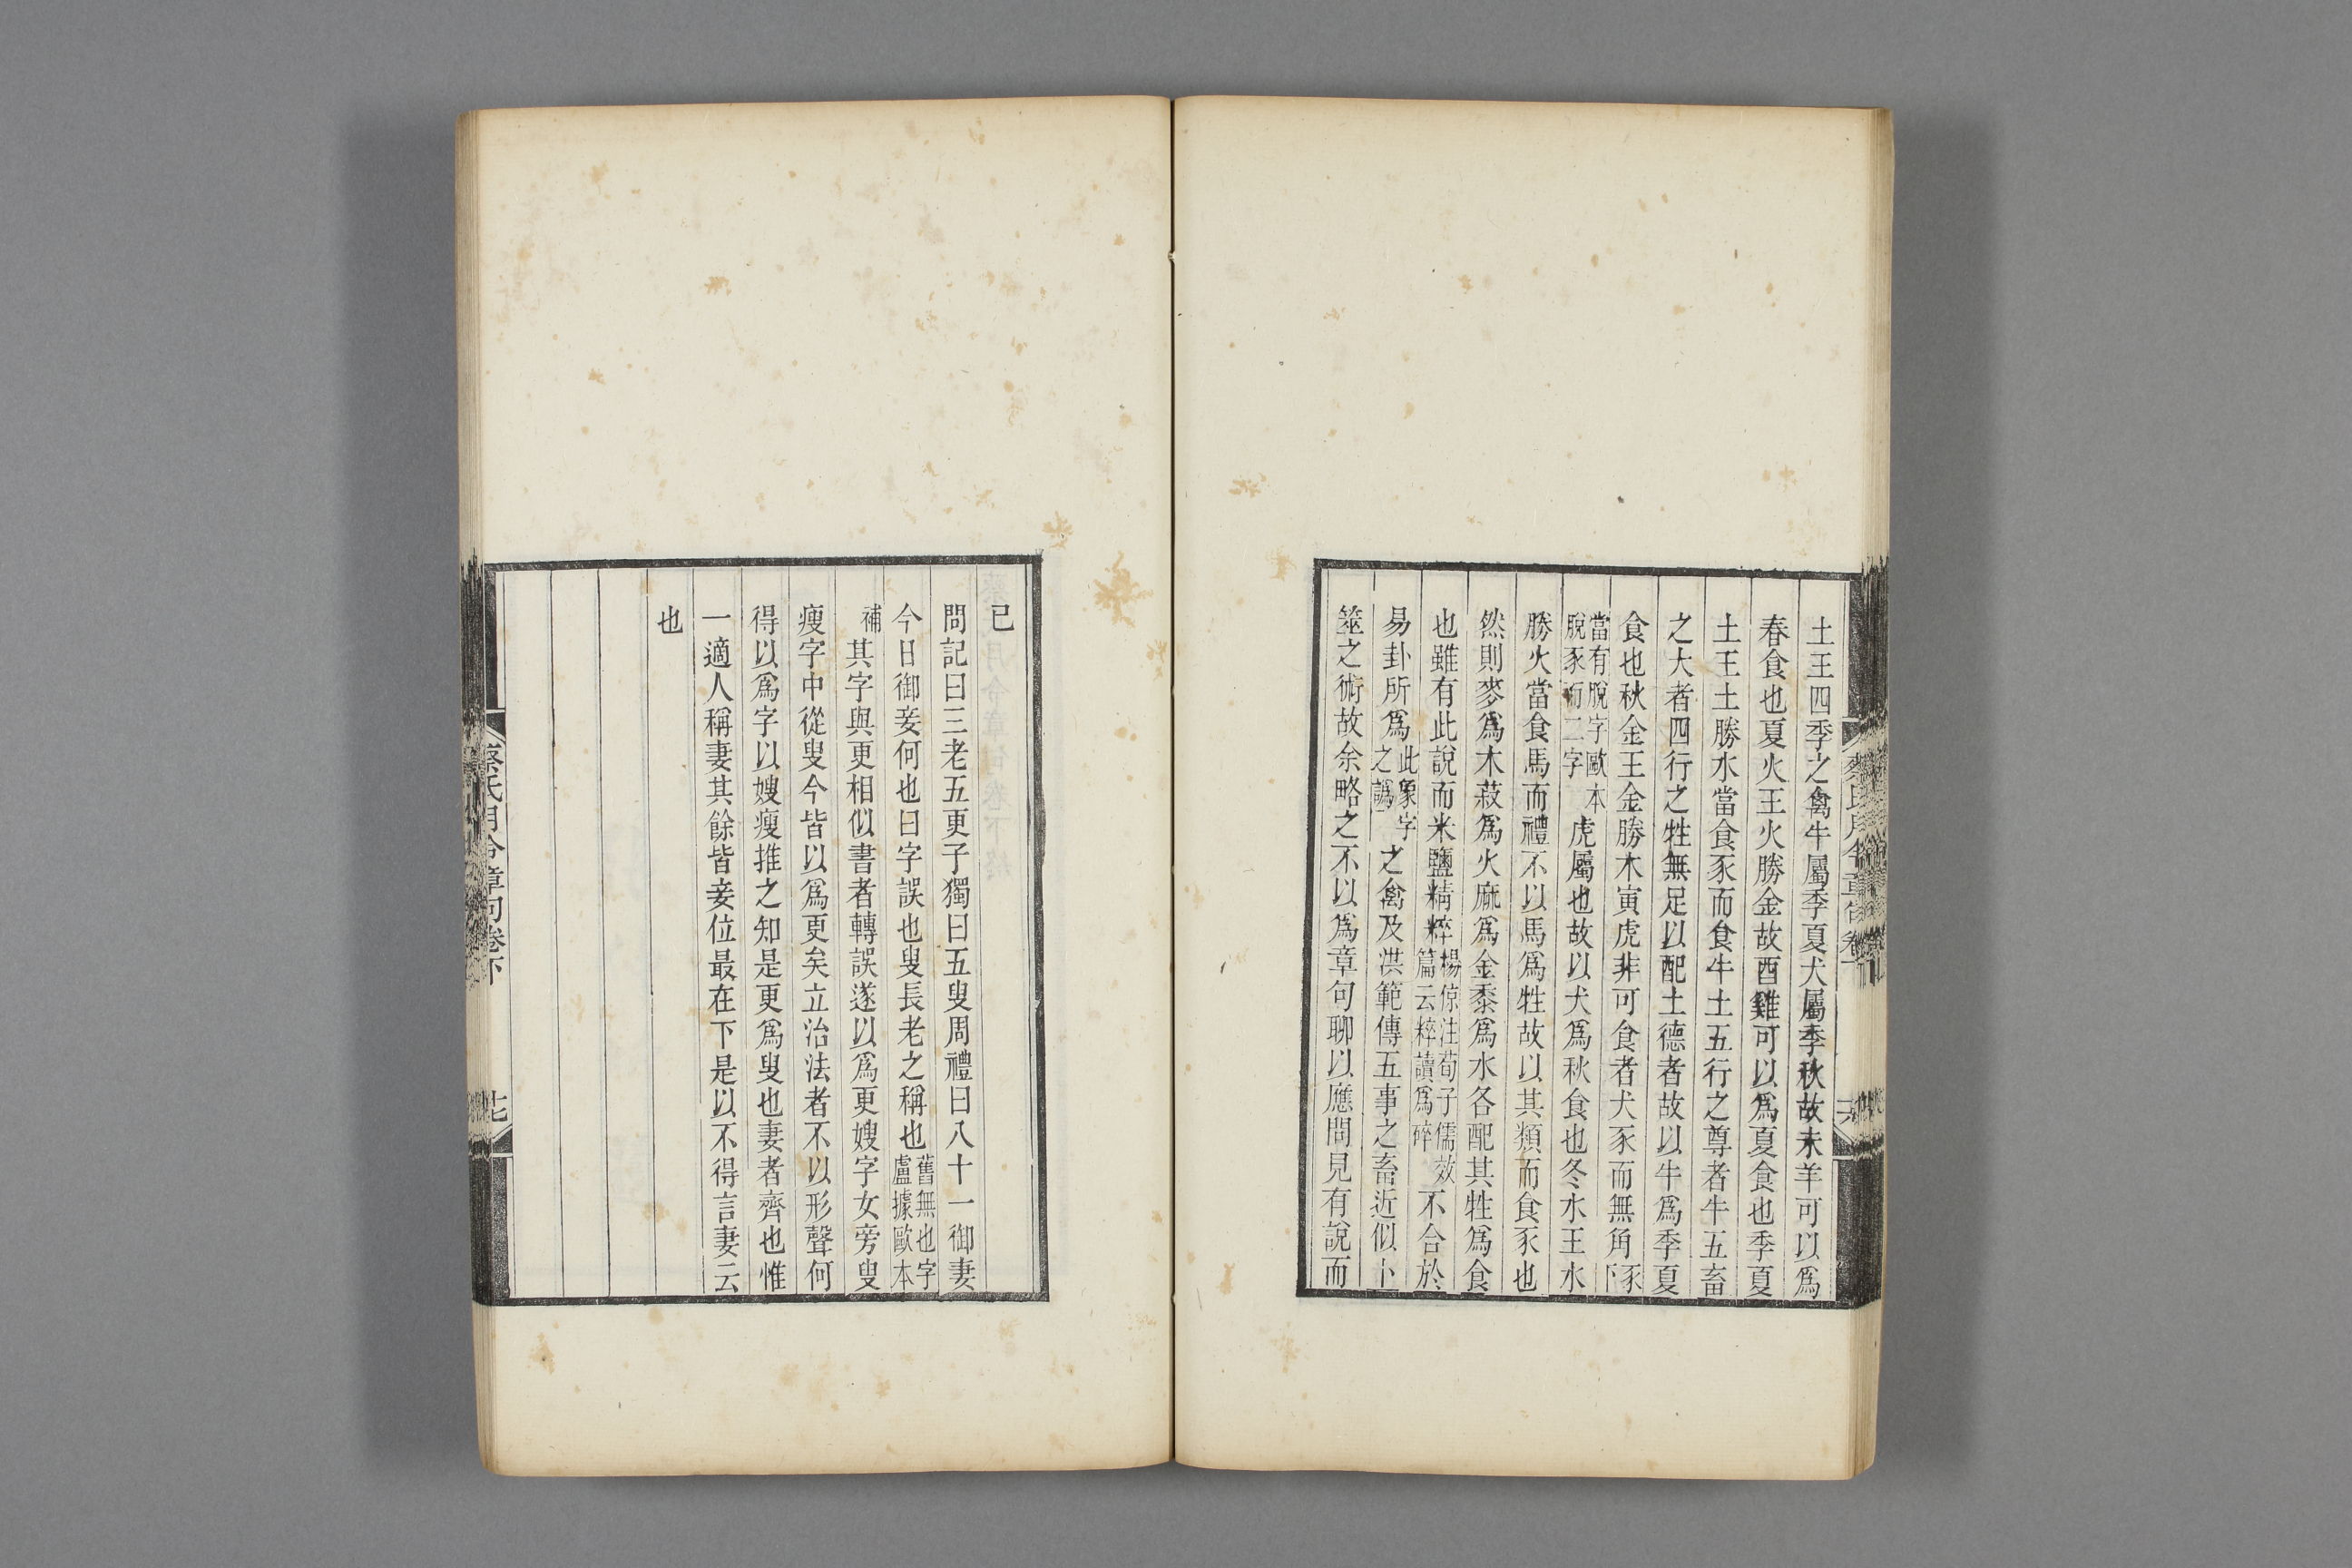 土王四季之禽牛屬季夏犬屬季秋故未羊可以爲
春食也夏火王火勝金故酉雞可以爲夏食也季夏
土王土勝水當食豕而食牛土五行之尊者牛五畜
之大者四行之牲無足以配土德者故以牛爲季夏
食也秋金王金勝木寅虎非可食者犬豕而無角豕下
當有脫字歐本脫豕而二字虎屬也故以犬爲秋食也冬水王水
勝火當食馬而禮不以馬爲牲故以其類而食豕也
然則麥爲木菽爲火麻爲金黍爲水各配其牲爲食
也雖有此說而米鹽精粹楊倞注荀子儒效篇云粹讀爲碎不合於
易卦所爲此象字之譌之禽及洪範傳五事之畜近似卜
筮之術故余略之不以爲章句聊以應問見有說而
已
問記曰三老五更子獨曰五叟周禮曰八十一御妻
今日御妾何也曰字誤也叟長老之稱也舊無也字盧據歐本
補其字與更相似書者轉誤遂以爲更嫂字女旁叟
瘦字中從叟今皆以爲更矣立治法者不以形聲何
得以爲字以嫂瘦推之知是更爲叟也妻者齊也惟
一適人稱妻其餘皆妾位最在下是以不得言妻云
也
蔡氏月令章句卷下